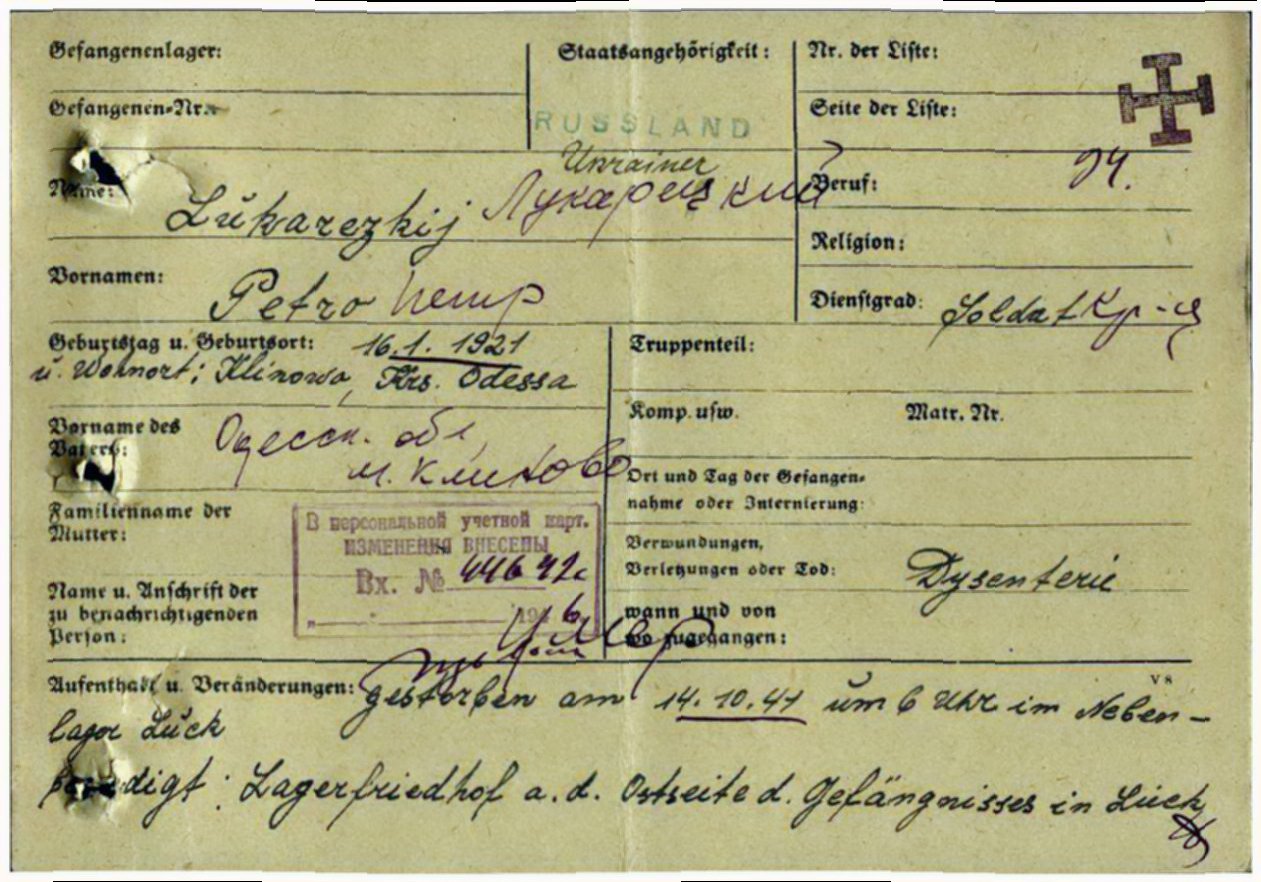 Gefangenenlager:
Staatsangehörigkeit:
Nr. der Liste:
Gefangenen-Nr.:
RUSSLAND
Seite der Liste:
Ukrainer
Name: Lukarezkij Лукарецкий
Beruf:
Religion:
Vornamen: Petro Петр
Dienstgrad: Soldat Кр-ц
Geburtstag u. Geburtsort: 16.1.1921
u. Wohnort: Klinowo, Krs. Odessa
Truppenteil:
Komp. usw. Matr. Nr.
Vorname des
Vaters:
Одесск. обл,
м. Клиново
Ort und Tag der Gefangen-
nahme oder Internierung:
Familienname der
Mutter:
В персональной учетной карт.
ИЗМЕНЕНИЯ ВНЕСЕНЫ
Вх. № 44642с
194 6
Verwundungen,
Verletzungen oder Tod: Dysenterie
Name u. Anschrift der
zu benachrichtigenden
Person:
wann und von
wo zugegangen:
умер
V8
Aufenthalt u. Veränderungen: gestorben am 14.10.41 um 6 Uhr im Neben-
lager Luck
Lagerfriedhof a. d. Ostseite d. Gefängnisses in Luck